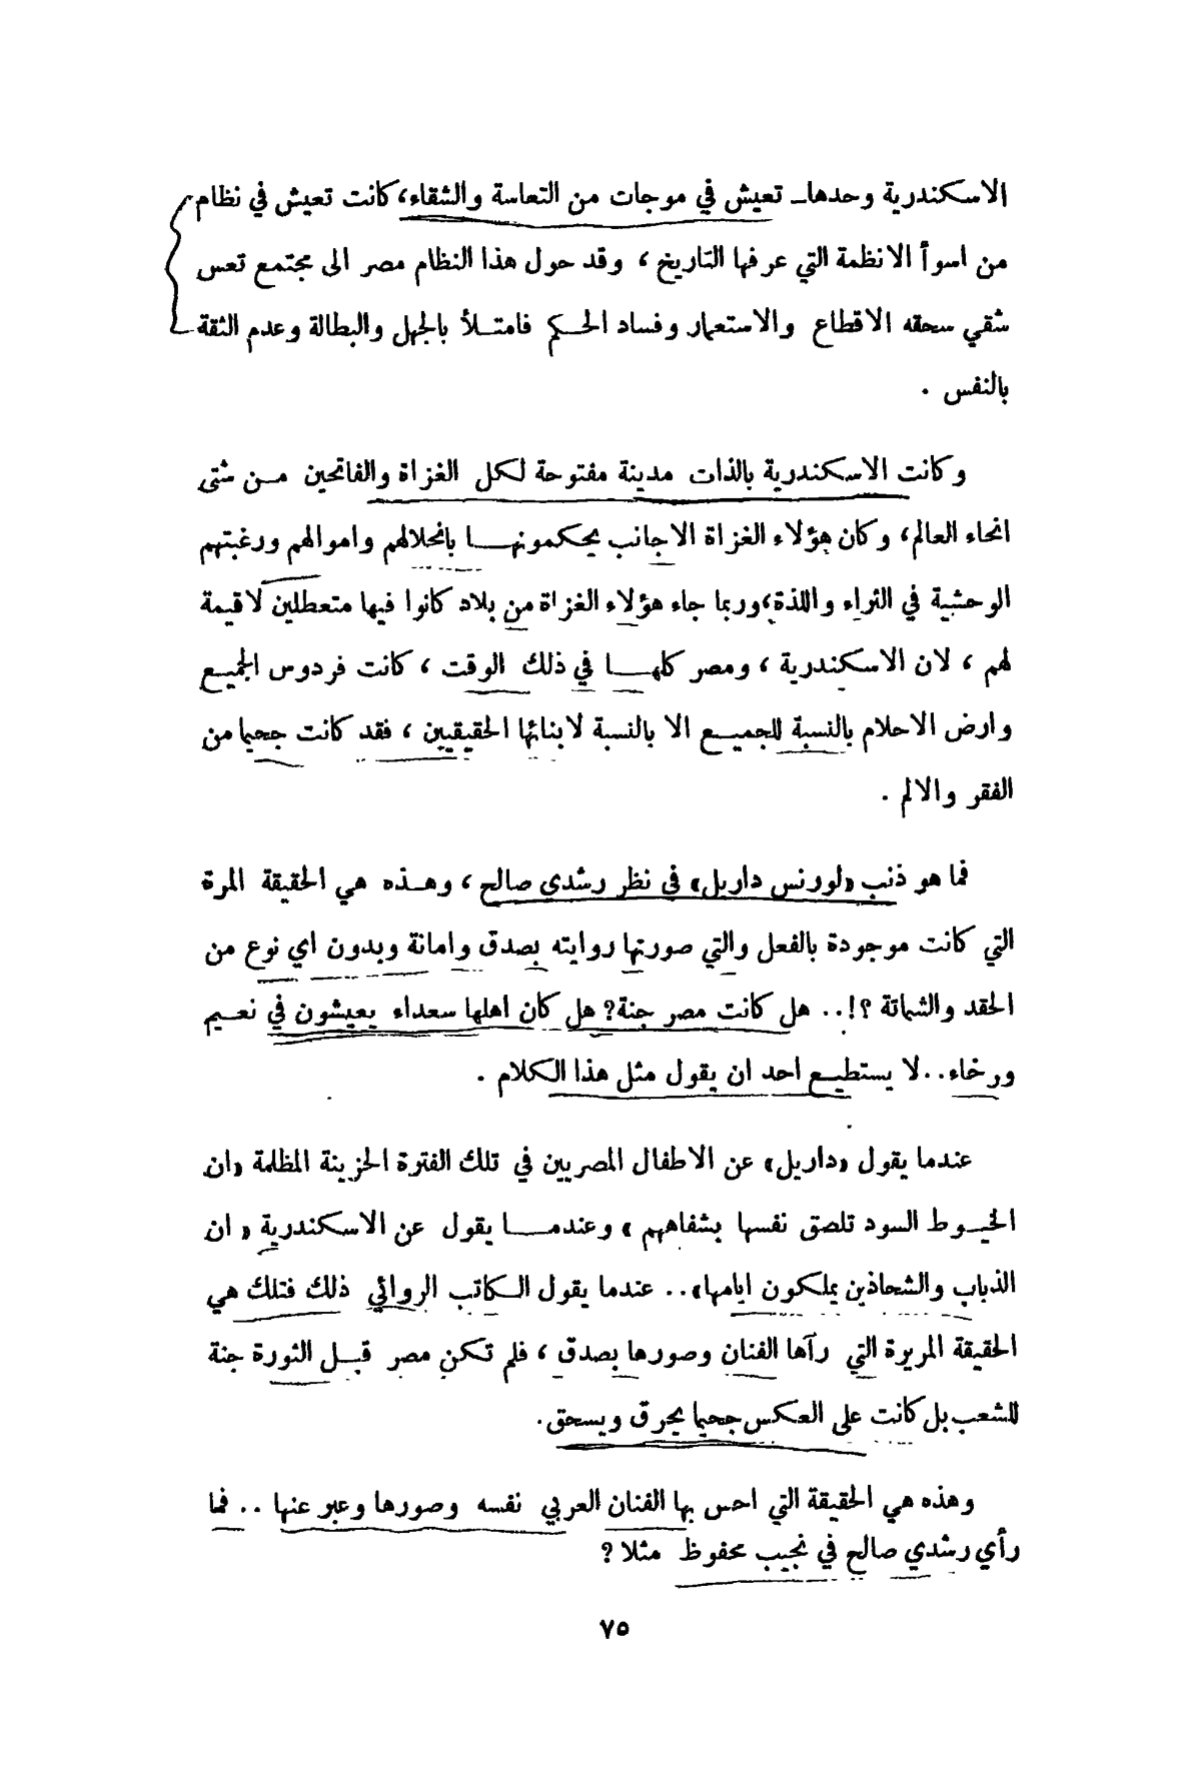 الاسكندرية وحدها ــ تعيش في موجات من التعاسة والشقاء، كانت تعيش في نظام
من اسوأ الانظمة التي عرفها التاريخ ، وقد حول هذا النظام مصر الى مجتمع تعس
شقي سحقه الاقطاع والاستعمار وفساد الحكم فامتلأ بالجهل والبطالة وعدم الثقة
بالنفس .
وكانت الاسكندرية بالذات مدينة مفتوحة لكل الغزاة والفاتحين من شتى
انحاء العالم، وكان هؤلاء الغزاة الاجانب يحكمونها بانحلالهم واموالهم ورغبتهم
الوحشية في الثراء واللذة، وربما جاء هؤلاء الغزاة من بلاد كانوا فيها متعطلين لا قيمة
لهم ، لان الاسكندرية ، ومصر كلها في ذلك الوقت ، كانت فردوس الجميع
وارض الاحلام بالنسبة للجميع الا بالنسبة لابنائها الحقيقيين ، فقد كانت جحيما من
الفقر والالم .
فما هو ذنب «لورنس داريل» في نظر رشدي صالح ، وهذه هي الحقيقة المرة
التي كانت موجودة بالفعل والتي صورتها روايته بصدق وامانة وبدون اي نوع من
الحقد والشماتة ؟!.. هل كانت مصر جنة؟ هل كان اهلها سعداء يعيشون في نعيم
ورخاء.. لا يستطيع احد ان يقول مثل هذا الكلام .
عندما يقول «داريل» عن الاطفال المصريين في تلك الفترة الحزينة المظلمة «ان
الخيوط السود تلصق نفسها بشفاههم » وعندما يقول عن الاسكندرية « ان
الذباب والشحاذين يملكون ايامها».. عندما يقول الكاتب الروائي ذلك فتلك هي
الحقيقة المريرة التي رآها الفنان وصورها بصدق ، فلم تكن مصر قبل الثورة جنة
للشعب بل كانت على العكس جحيما يحرق ويسحق.
وهذه هي الحقيقة التي احس بها الفنان العربي نفسه وصورها وعبر عنها .. فما
رأي رشدي صالح في نجيب محفوظ مثلا ؟
٧٥